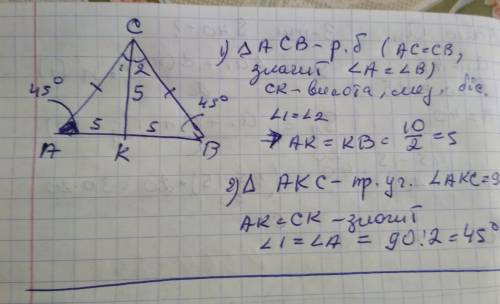 C
1 2
5
45°
45°
5 5
A K B
1) Δ ACB – р.б (AC=CB,
значит ∠A=∠B)
CK – висота, мед. біс.
∠1=∠2
→ AK = KB = 10/2 = 5
2) Δ AKC – пр. уг. ∠AKC=9
AK = CK – значит
∠1=∠A = 90:2=45°